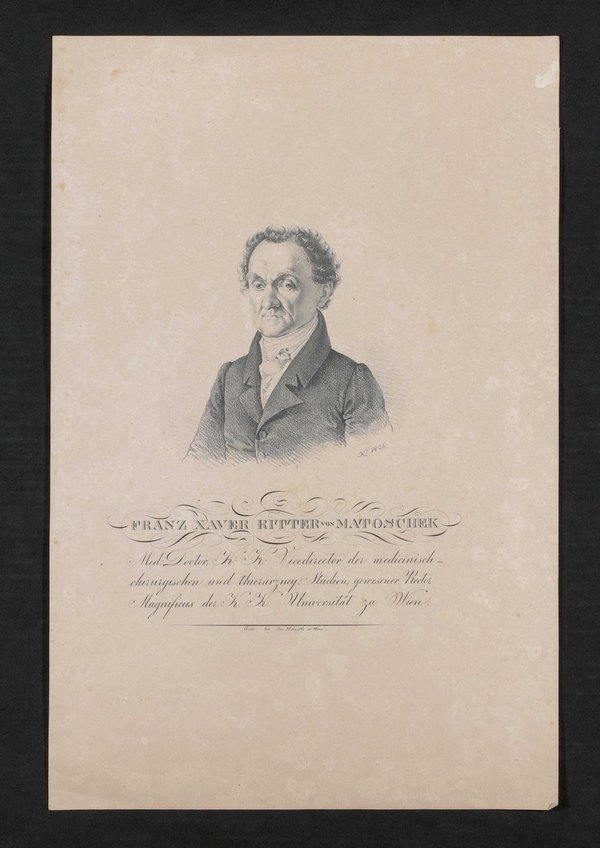 K. 1826.
FRANZ XAVER RITTER VON MATOSCHEK
Med. Doctor, K. K. Vicedirector der medicinisch-
chirurgischen und thierarzney. Studien, gewesener Rector
Magnificus der K. K. Universität zu Wien.
in Wien